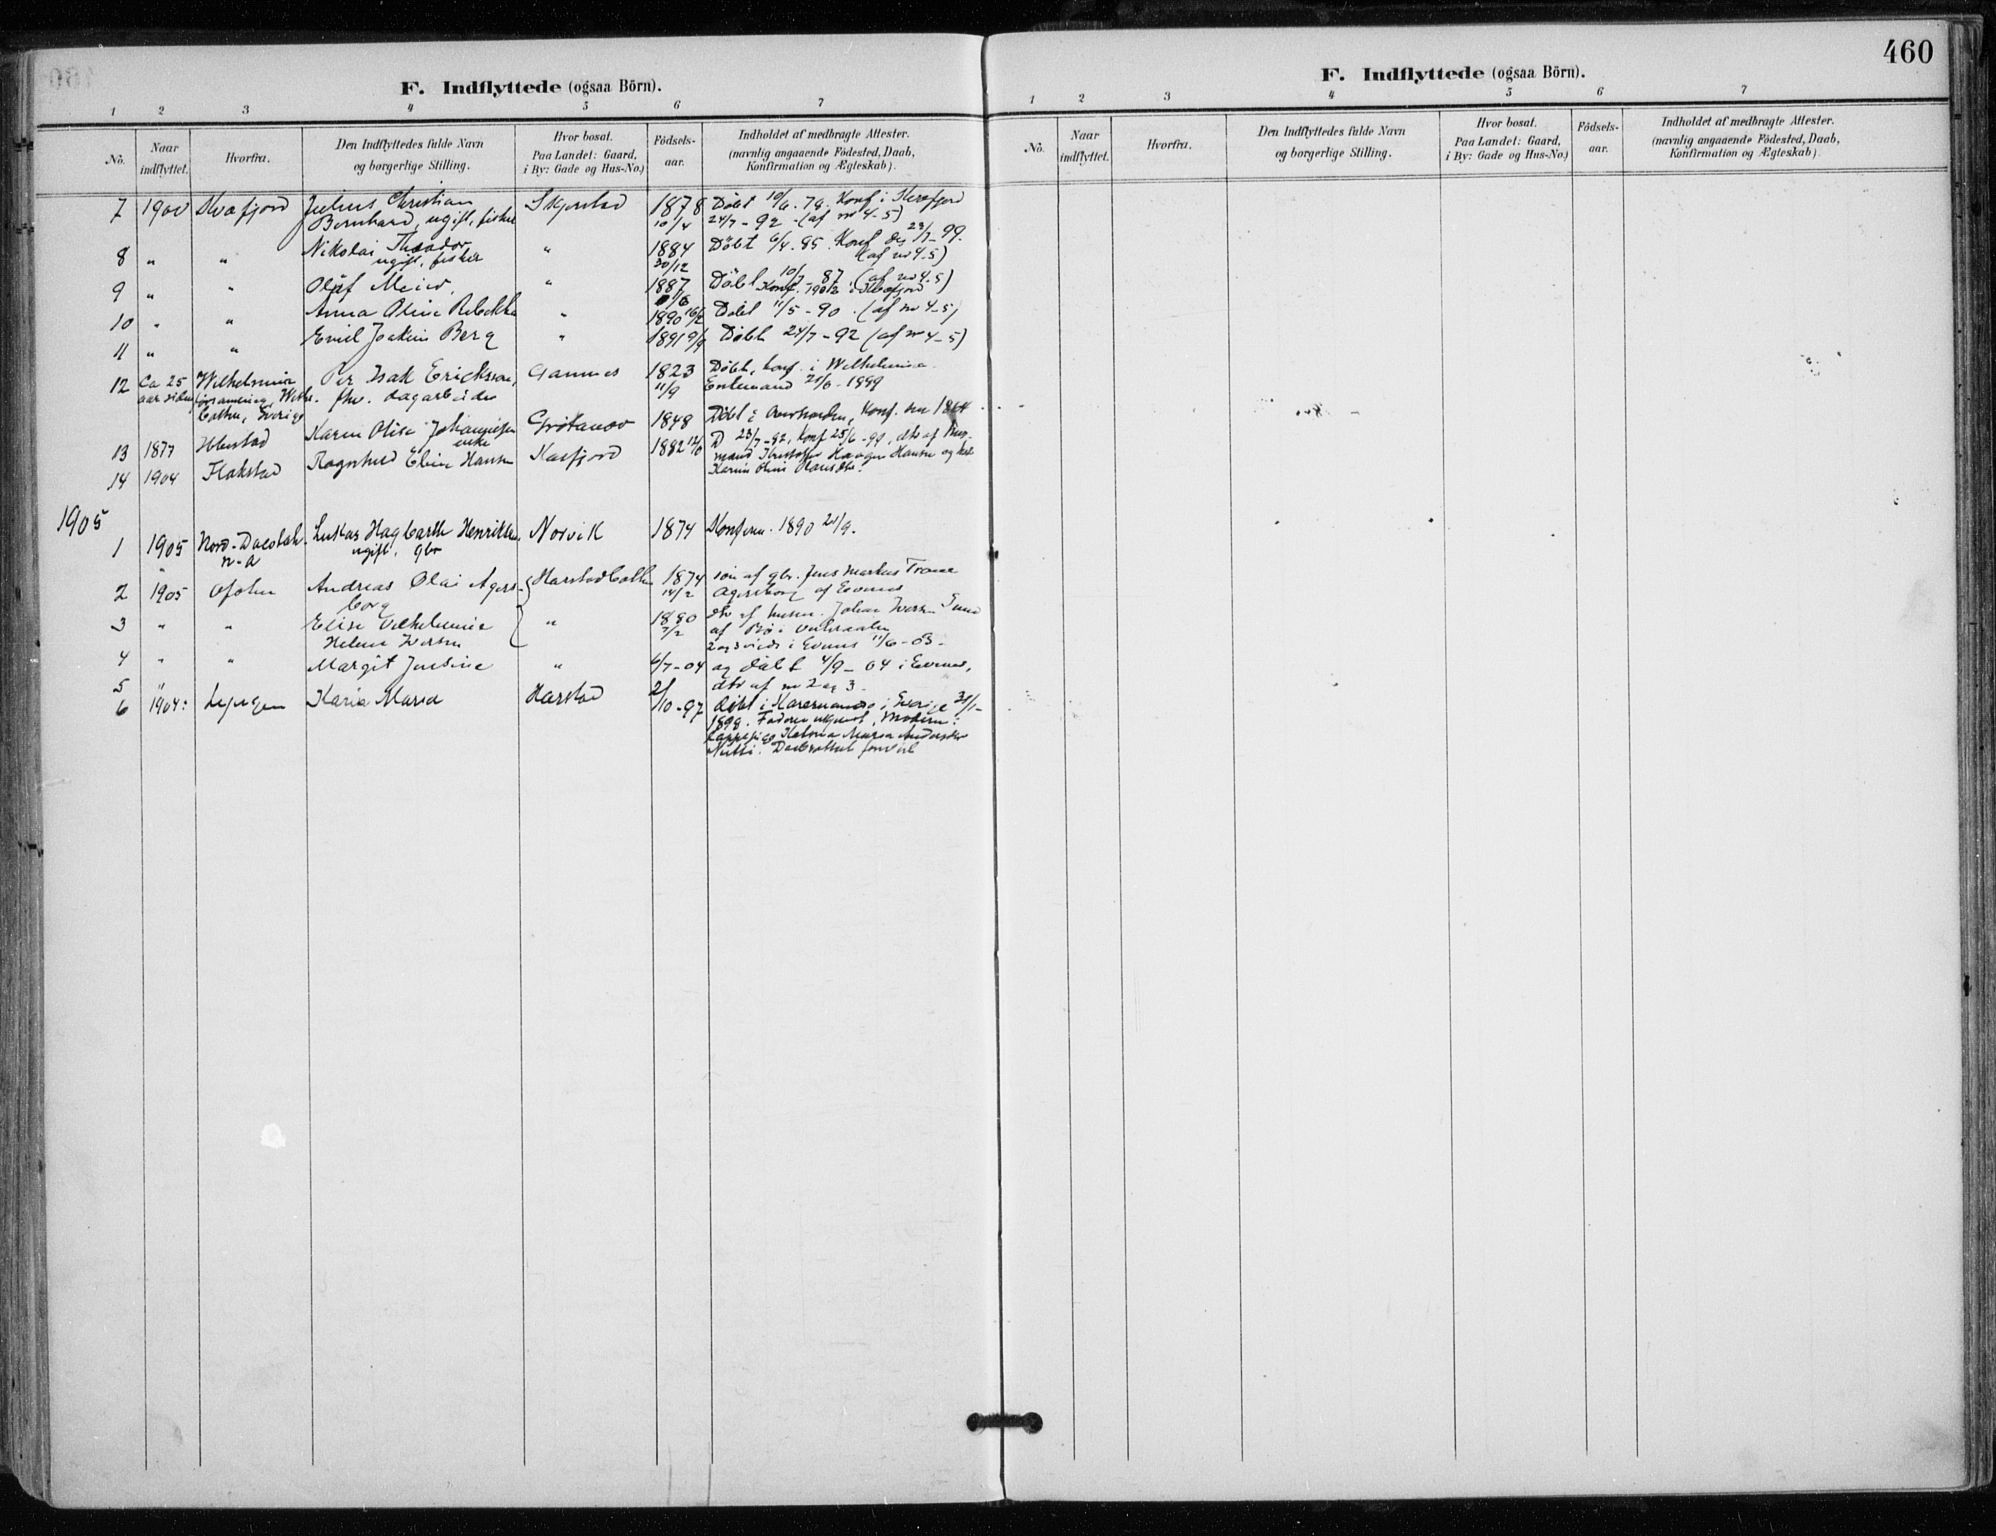 460
F. Indflyttede (ogsaa Börn).
1 2 3 4 5 6 7
No.
Naar indflyttet.
Hvorfra.
Den Indflyttedes fulde Navn
og borgerlige Stilling.
Hvor bosat.
Paa Landet: Gaard,
i By: Gade og Hus-No.)
Födsels-
aar.
Indholdet af medbragte Attester.
(navnlig angaaende Födested, Daab,
Konfirmation og Ægteskab).
7 1900 Kvæfjord Julius Christian Skjerstad 1878 Döbt 10/6. 78. Konf. i Kvæfjord
Bernhard, ugift, fisker 10/4 24/7 - 92. (af no 4-5)
8 " " Nikolai Theodor " 1884 Döbt 6/4. 85. Konf. 23/7 - 99.
ugift, fisker 30/12 (af no 4-5)
9 " " Olaf Meier. " 1887 Döbt 10/7 - 87 (af no 4-5)
Konf. 1902 i Kvæfjord
10 " " Anna Oline Rebekka " 1890 16/2 Döbt 11/5 - 90. (af no 4-5)
11 " " Emil Joakim Berg " 1891 9/9 Döbt 24/7 - 92 (af no 4-5)
12 Ca 25 Wilhelmina Per Isak Ericksson, Gannes 1823 Döbt, konf. i Wilhelmina.
aar siden fhv. dagarbeider 11/9 Enkemand 21/6 - 1899
Sverige
13 1877 Karen Olise Johannesen Grötavær 1848 Döbt i Konf.
enke
14 1904 Flakstad Ragnhild Eline Hansen Kasfjord 1882 12/6 D 23/7 - 82, Konf 25/6 - 99, dtr af
Kristoffer Haagen Hansen og
Karen
1905
1 1905 Nord- Lukas Hagbarth Henriksen, Norvik 1874 Konfirm. 1890 21/9.
ugift, gbr
2 1905 Ofoten Andreas Olai Agers- Harstadbotten 1874 sön af gbr. Jens Markus Trane
borg 14/2 Agersborg af Evenes
3 " " Elise Vilhelmine " 1880 dtr af husm. Johan Iversen
Helene Iversen 7/2 af Bö i Vesteraalen
2 og 3 viede i Evenes 11/6 - 03 -
4 " " Margit Jensine " 6/7 - 04 og döbt 4/9 - 04 i Evenes,
5 " dtr af no 2 og 3.
6 1904: Lyngen Karia Maria Harstad 2/10 - 97 döbt i Karesuando i Sverige 31/1 -
1898. Faderen ukjendt, Moderen:
Lappepige Maria
Daabsattest
F. Indflyttede (ogsaa Börn).
1 2 3 4 5 6 7
No.
Naar
indflyttet.
Hvorfra.
Den Indflyttedes fulde Navn
og borgerlige Stilling.
Hvor bosat.
Paa Landet: Gaard,
i By: Gade og Hus-No.)
Födsels-
aar.
Indholdet af medbragte Attester.
(navnlig angaaende Födested, Daab,
Konfirmation og Ægteskab).